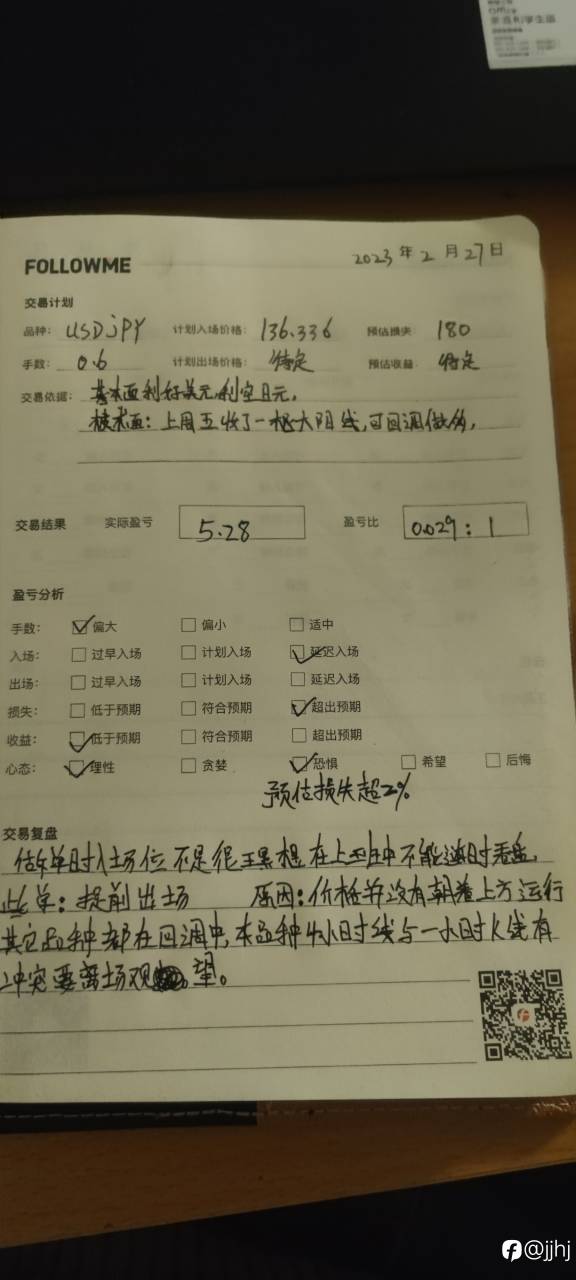 FOLLOWME
2023 年 2 月 27 日
交易计划
品种: USDJPY 计划入场价格: 136.336 预估损失: 180
手数: 0.6 计划出场价格: 待定 预估收益: 待定
交易依据: 基本面利好美元,利空日元,
技术面:上周五收了一根大阳线,可回调做多,
交易结果 实际盈亏 5.28 盈亏比 0.029:1
盈亏分析
手数: 偏大 偏小 适中
入场: 过早入场 计划入场 延迟入场
出场: 过早入场 计划入场 延迟入场
损失: 低于预期 符合预期 超出预期
收益: 低于预期 符合预期 超出预期
心态: 理性 贪婪 恐惧 希望 后悔
预估损失超2%
交易复盘
做多单时入场位不是很理想在上班中不能适时看盘,
此单:提前出场 原因:价格并没有朝着上方运行
其它品种都在回调中,本品种4小时线与一小时K线有
冲突要离场观望。
@jjhj